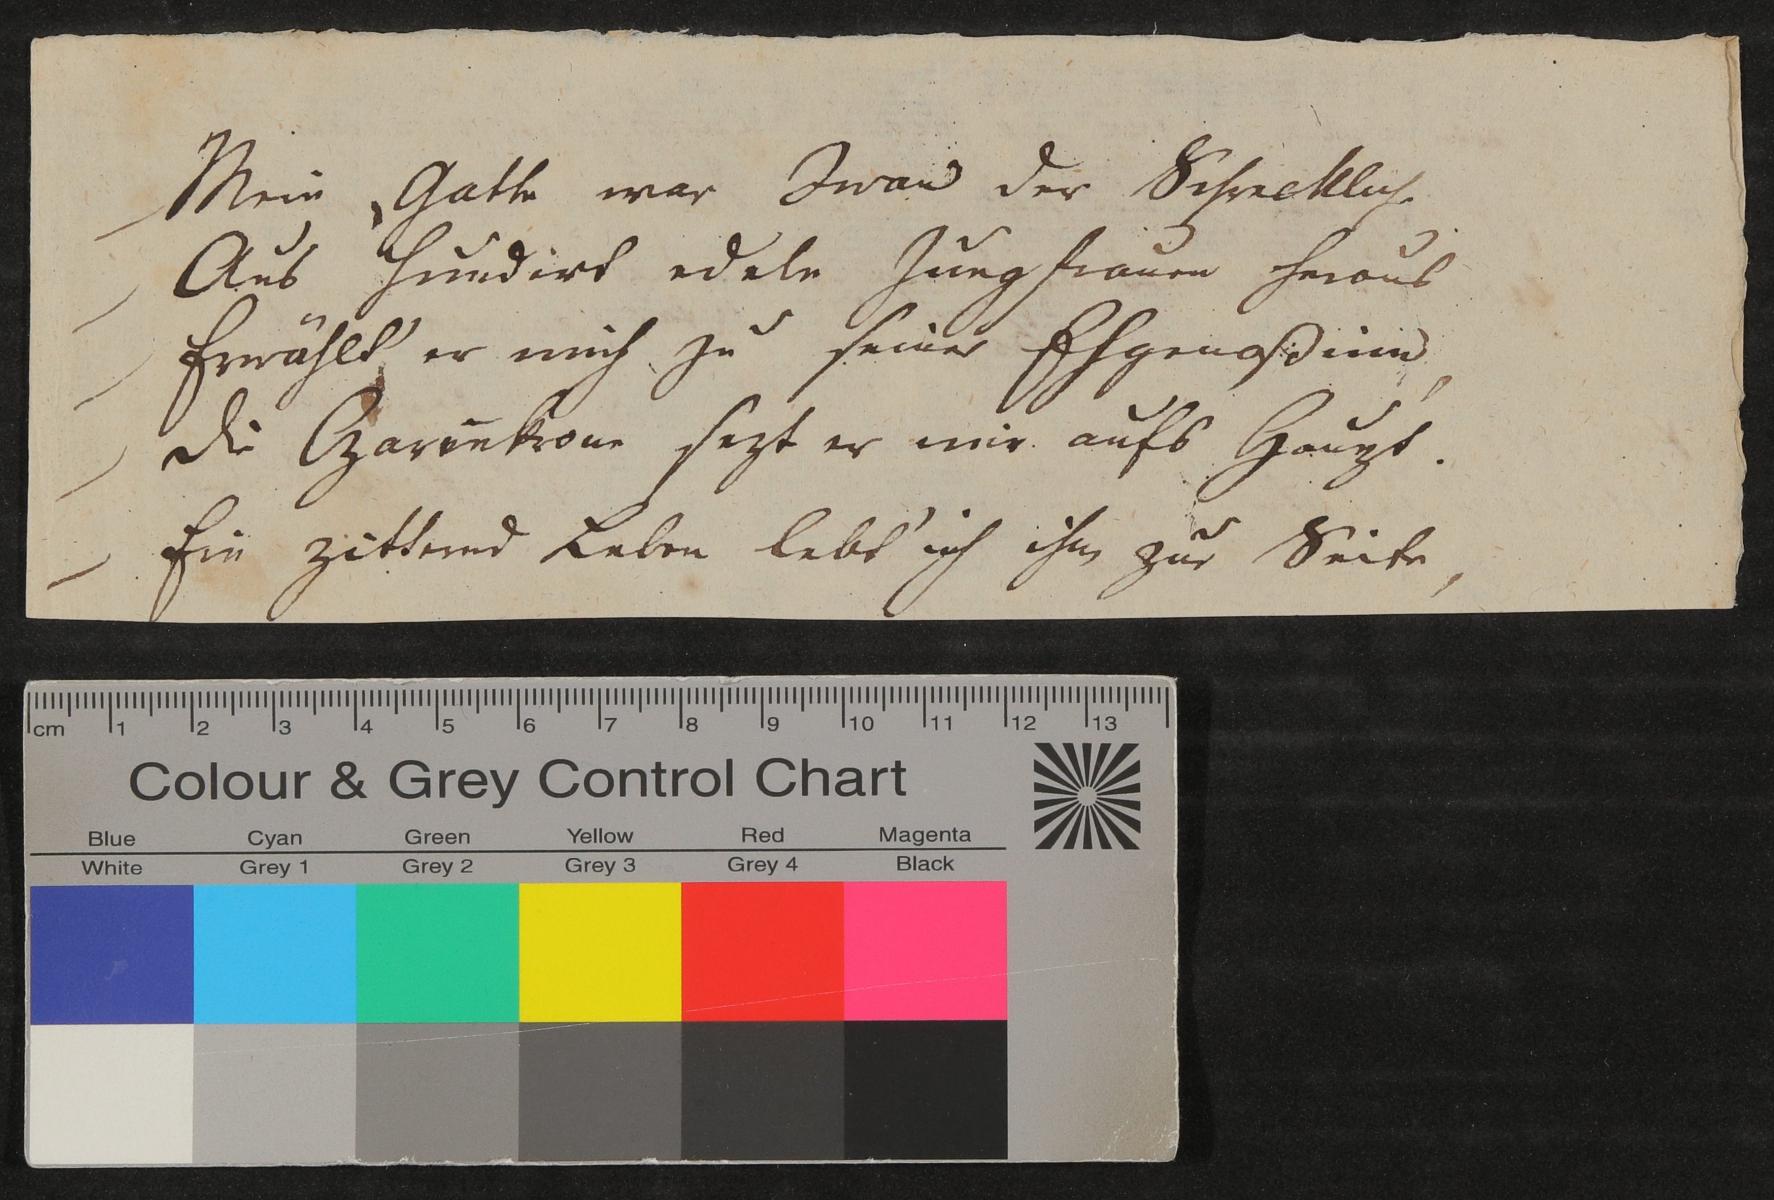 Mein Gatte war Iwan der Schreckliche.
Aus hundert edeln Jungfrauen heraus
Erwählt' er mich zu seiner Ehgenoßinn,
Die Czarinkrone sezt er mir aufs Haupt.
Ein zitternd Leben lebt' ich ihm zur Seite,
cm 1 2 3 4 5 6 7 8 9 10 11 12 13
Colour & Grey Control Chart
Blue Cyan Green Yellow Red Magenta
White Grey 1 Grey 2 Grey 3 Grey 4 Black